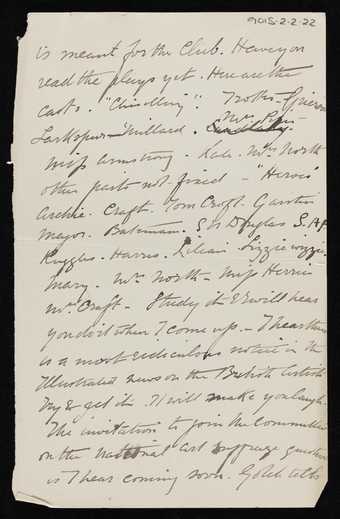 9015-2-2-22
is meant for the Club. Have you
read the plays yet. Here are the
casts. "Chiselling". Trotter-Grierson
Larkspur-Millard.
Miss Armstrong. Kate. Mrs North
other parts not fixed - "Heroes"
Archie. Craft. Tom Croft. Garston
Major. Bateman. S. Douglas
Ruggles. Harris. Lilian. Lizzie
Mary. Mrs North - Miss
Mrs Craft - Study it & I will hear
you do it when I come up. - I hear there
is a most ridiculous notice in the
Illustrated news on the British Artists
Try & get it. It will make you laugh.
The invitation to join the Committee
on the national art suffrage question
is I hear coming soon.